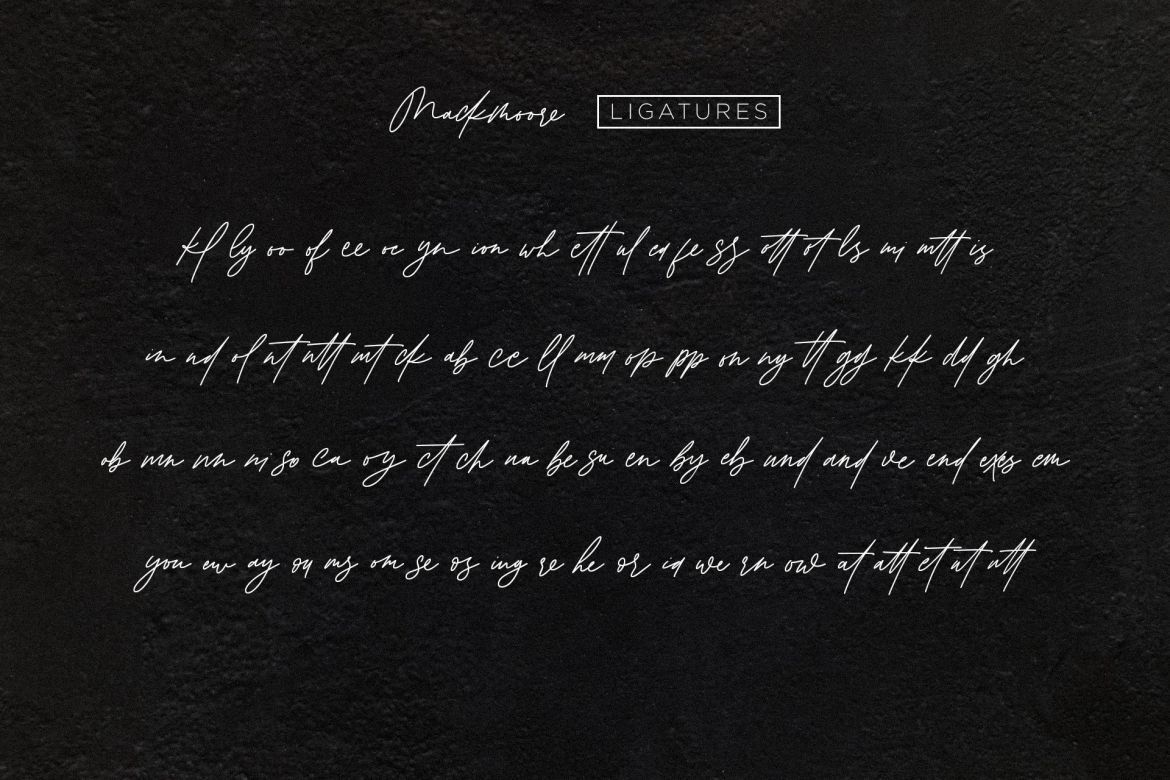 Mackmoore LIGATURES
ly oo of ee oc yn ion wh ett ul ea fe ss ott ot ls mi mtt is
in nd ol nt ntt mt ck ab ce ll mm op pp on ny tt gg kk dd gh
ob mn nn ni so ca oy ct ch na be su en by eb und and ve end es em
you ew ay oq ms om se os ing re he or ia we rn ow at att et ut utt